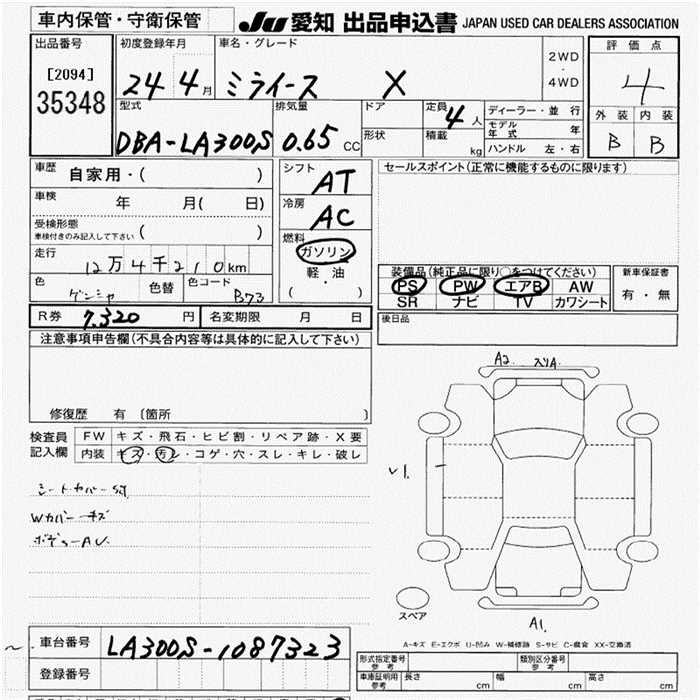 車内保管・守衛保管
JU 愛知 出品申込書 JAPAN USED CAR DEALERS ASSOCIATION
出品番号
[2094]
35348
初度登録年月
24 4月
車名・グレード
ミライース X
2WD
・
4WD
評価点
4
外装 内装
B B
型式
DBA-LA300S
排気量
0.65 CC
ドア
形状
定員
4人
積載
kg
ディーラー・並 行
モデル年式 年
ハンドル 左・右
車歴
自家用・( )
車検
年 月( 日)
受検形態
車検付きのみ記入して下さい ( )
走行
12万4千210km
色
色替
色コード
B73
シフト
AT
冷房
AC
燃料
ガソリン
軽・油
( ・ )
セールスポイント(正常に機能するものに限ります)
装備品(純正品に限り○をつけてください)
PS PW エアB AW
SR ナビ TV カワシート
新車保証書
有・無
後日品
R券 7.320 円
名変期限 月 日
注意事項申告欄(不具合内容等は具体的に記入して下さい)
修復歴 有 〔箇所 〕
検査員
記入欄
FW キズ・飛石・ヒビ割・リペア跡・X要
内装 キズ・汚レ・コゲ・穴・スレ・キレ・破レ
シートカバー
Wカバーキズ
A2
スリA
A1.
スペア
A-キズ E-エクボ U-凹み W-補修跡 S-サビ C-腐食 XX-交換済
車台番号
LA300S-1087323
登録番号
形式指定番号
参考
類別区分番号
参考
車庫証明用
参考
長さ cm
幅 cm
高さ cm